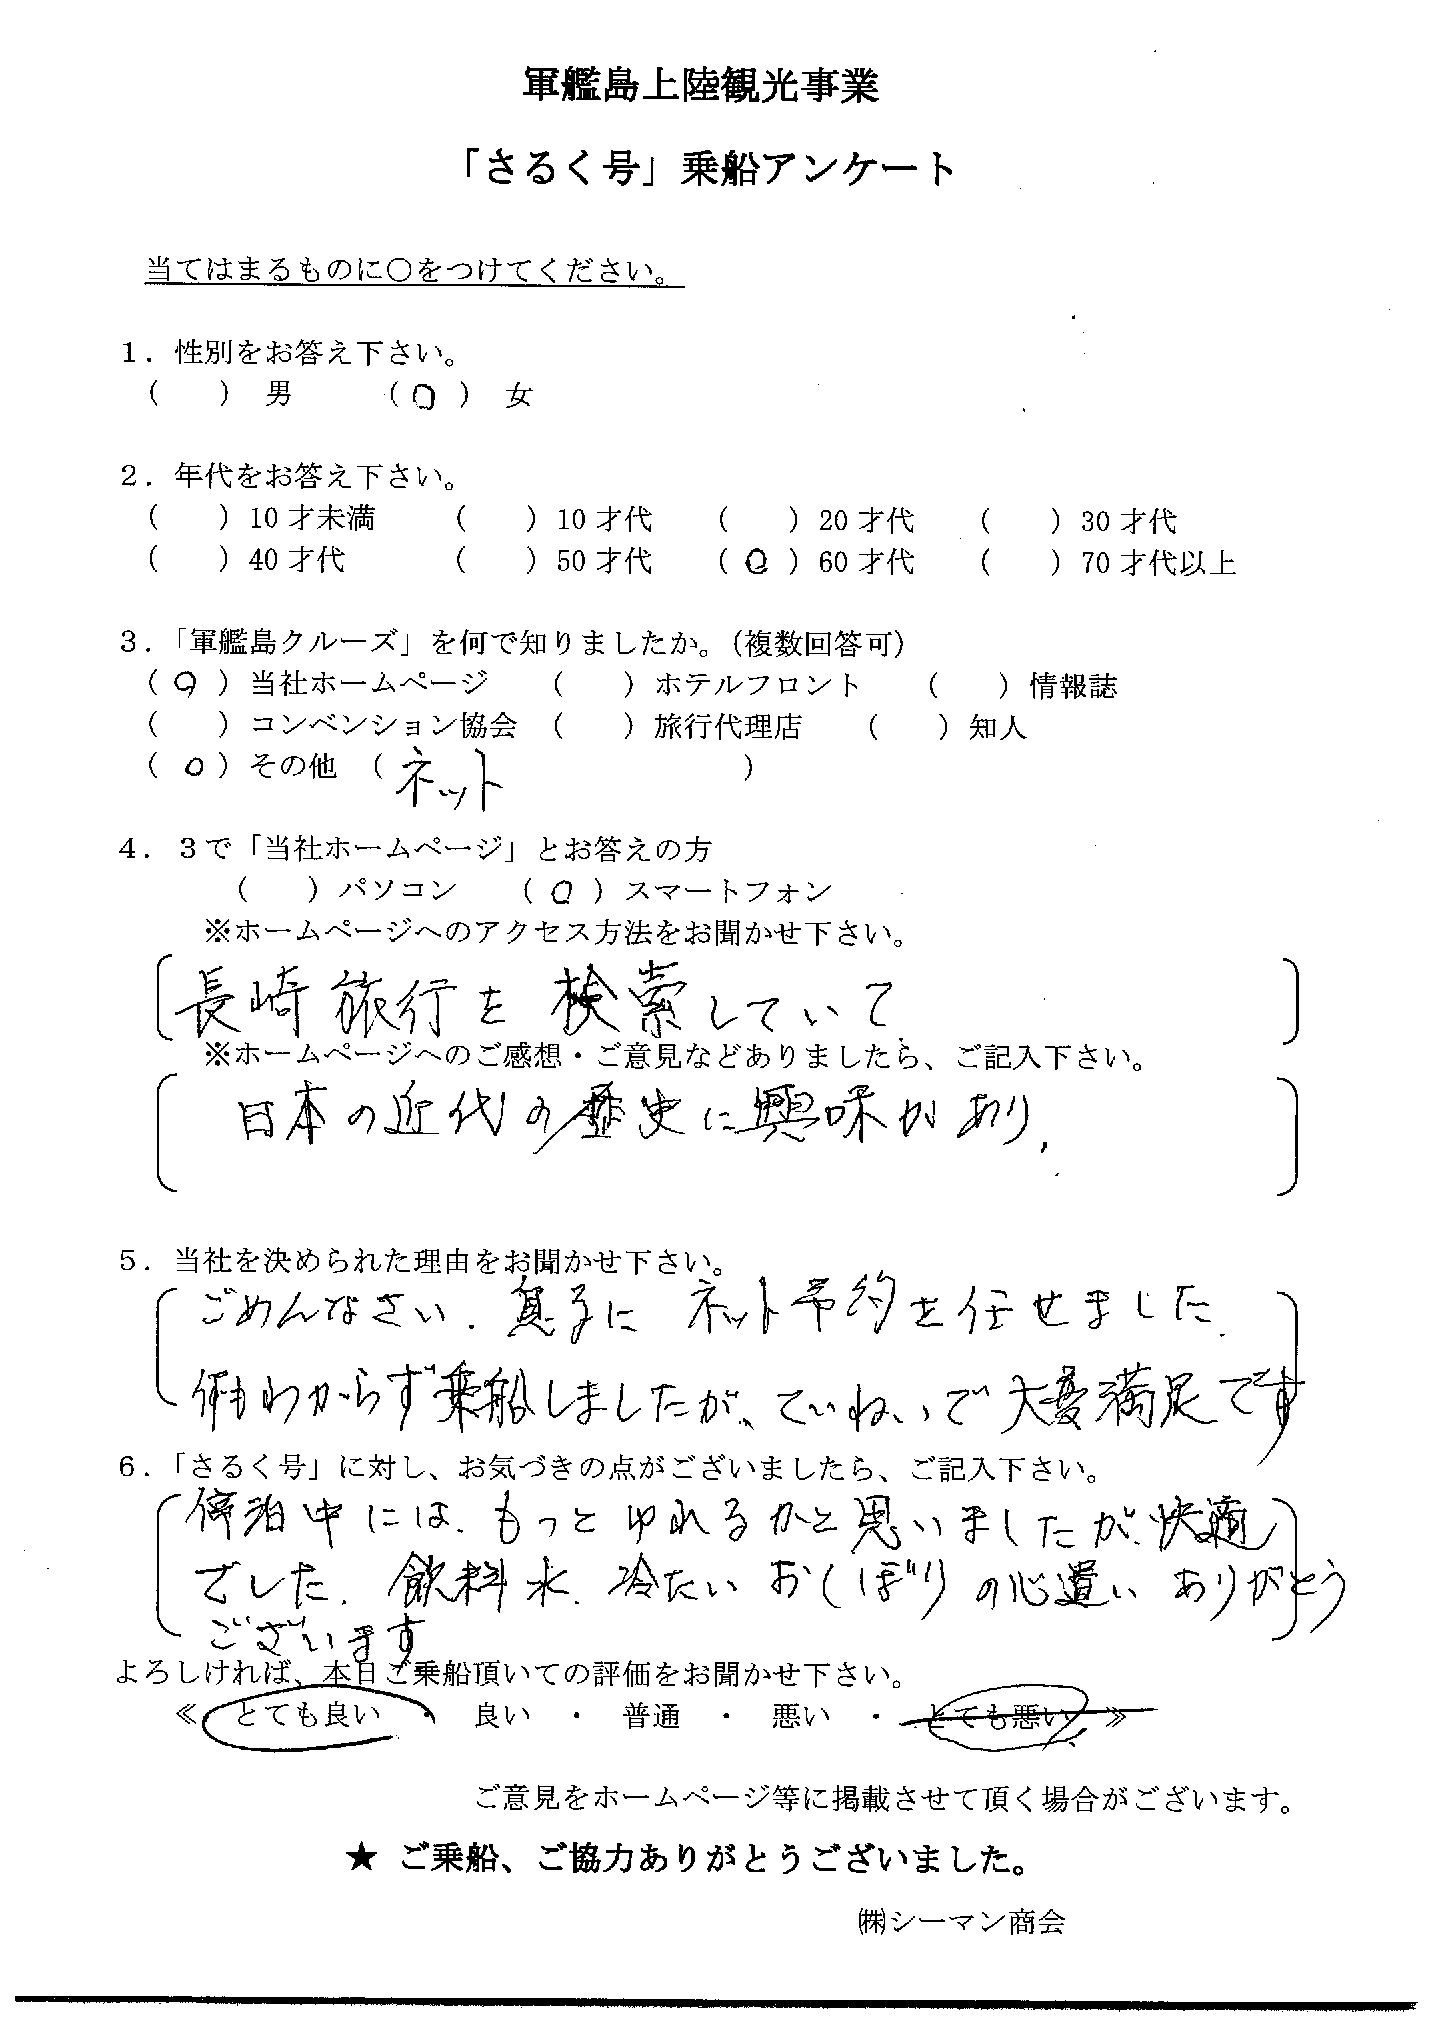 軍艦島上陸観光事業
「さるく号」乗船アンケート
当てはまるものに○をつけてください。
1．性別をお答え下さい。
（　　）男　　（○）女
2．年代をお答え下さい。
（　　）10才未満　（　　）10才代　（　　）20才代　（　　）30才代
（　　）40才代　（　　）50才代　（○）60才代　（　　）70才代以上
3．「軍艦島クルーズ」を何で知りましたか。（複数回答可）
（○）当社ホームページ　（　　）ホテルフロント　（　　）情報誌
（　　）コンベンション協会　（　　）旅行代理店　（　　）知人
（○）その他　（ネット　　　　）
4．3で「当社ホームページ」とお答えの方
（　　）パソコン　（○）スマートフォン
※ホームページへのアクセス方法をお聞かせ下さい。
長崎旅行を検索していて
※ホームページへのご感想・ご意見などありましたら、ご記入下さい。
日本の近代の歴史に興味があり、
5．当社を決められた理由をお聞かせ下さい。
ごめんなさい．息子に ネット予約を任せました．
何もわからず乗船しましたが、ていねいで大変満足です
6．「さるく号」に対し、お気づきの点がございましたら、ご記入下さい。
停泊中には．もっとゆれるかと思いましたが．快適
でした．飲料水．冷たいおしぼりの心遣いありがとう
ございます
よろしければ、本日ご乗船頂いての評価をお聞かせ下さい。
≪　とても良い　・　良い　・　普通　・　悪い　・　とても悪い　≫
ご意見をホームページ等に掲載させて頂く場合がございます。
★ ご乗船、ご協力ありがとうございました。
㈱シーマン商会